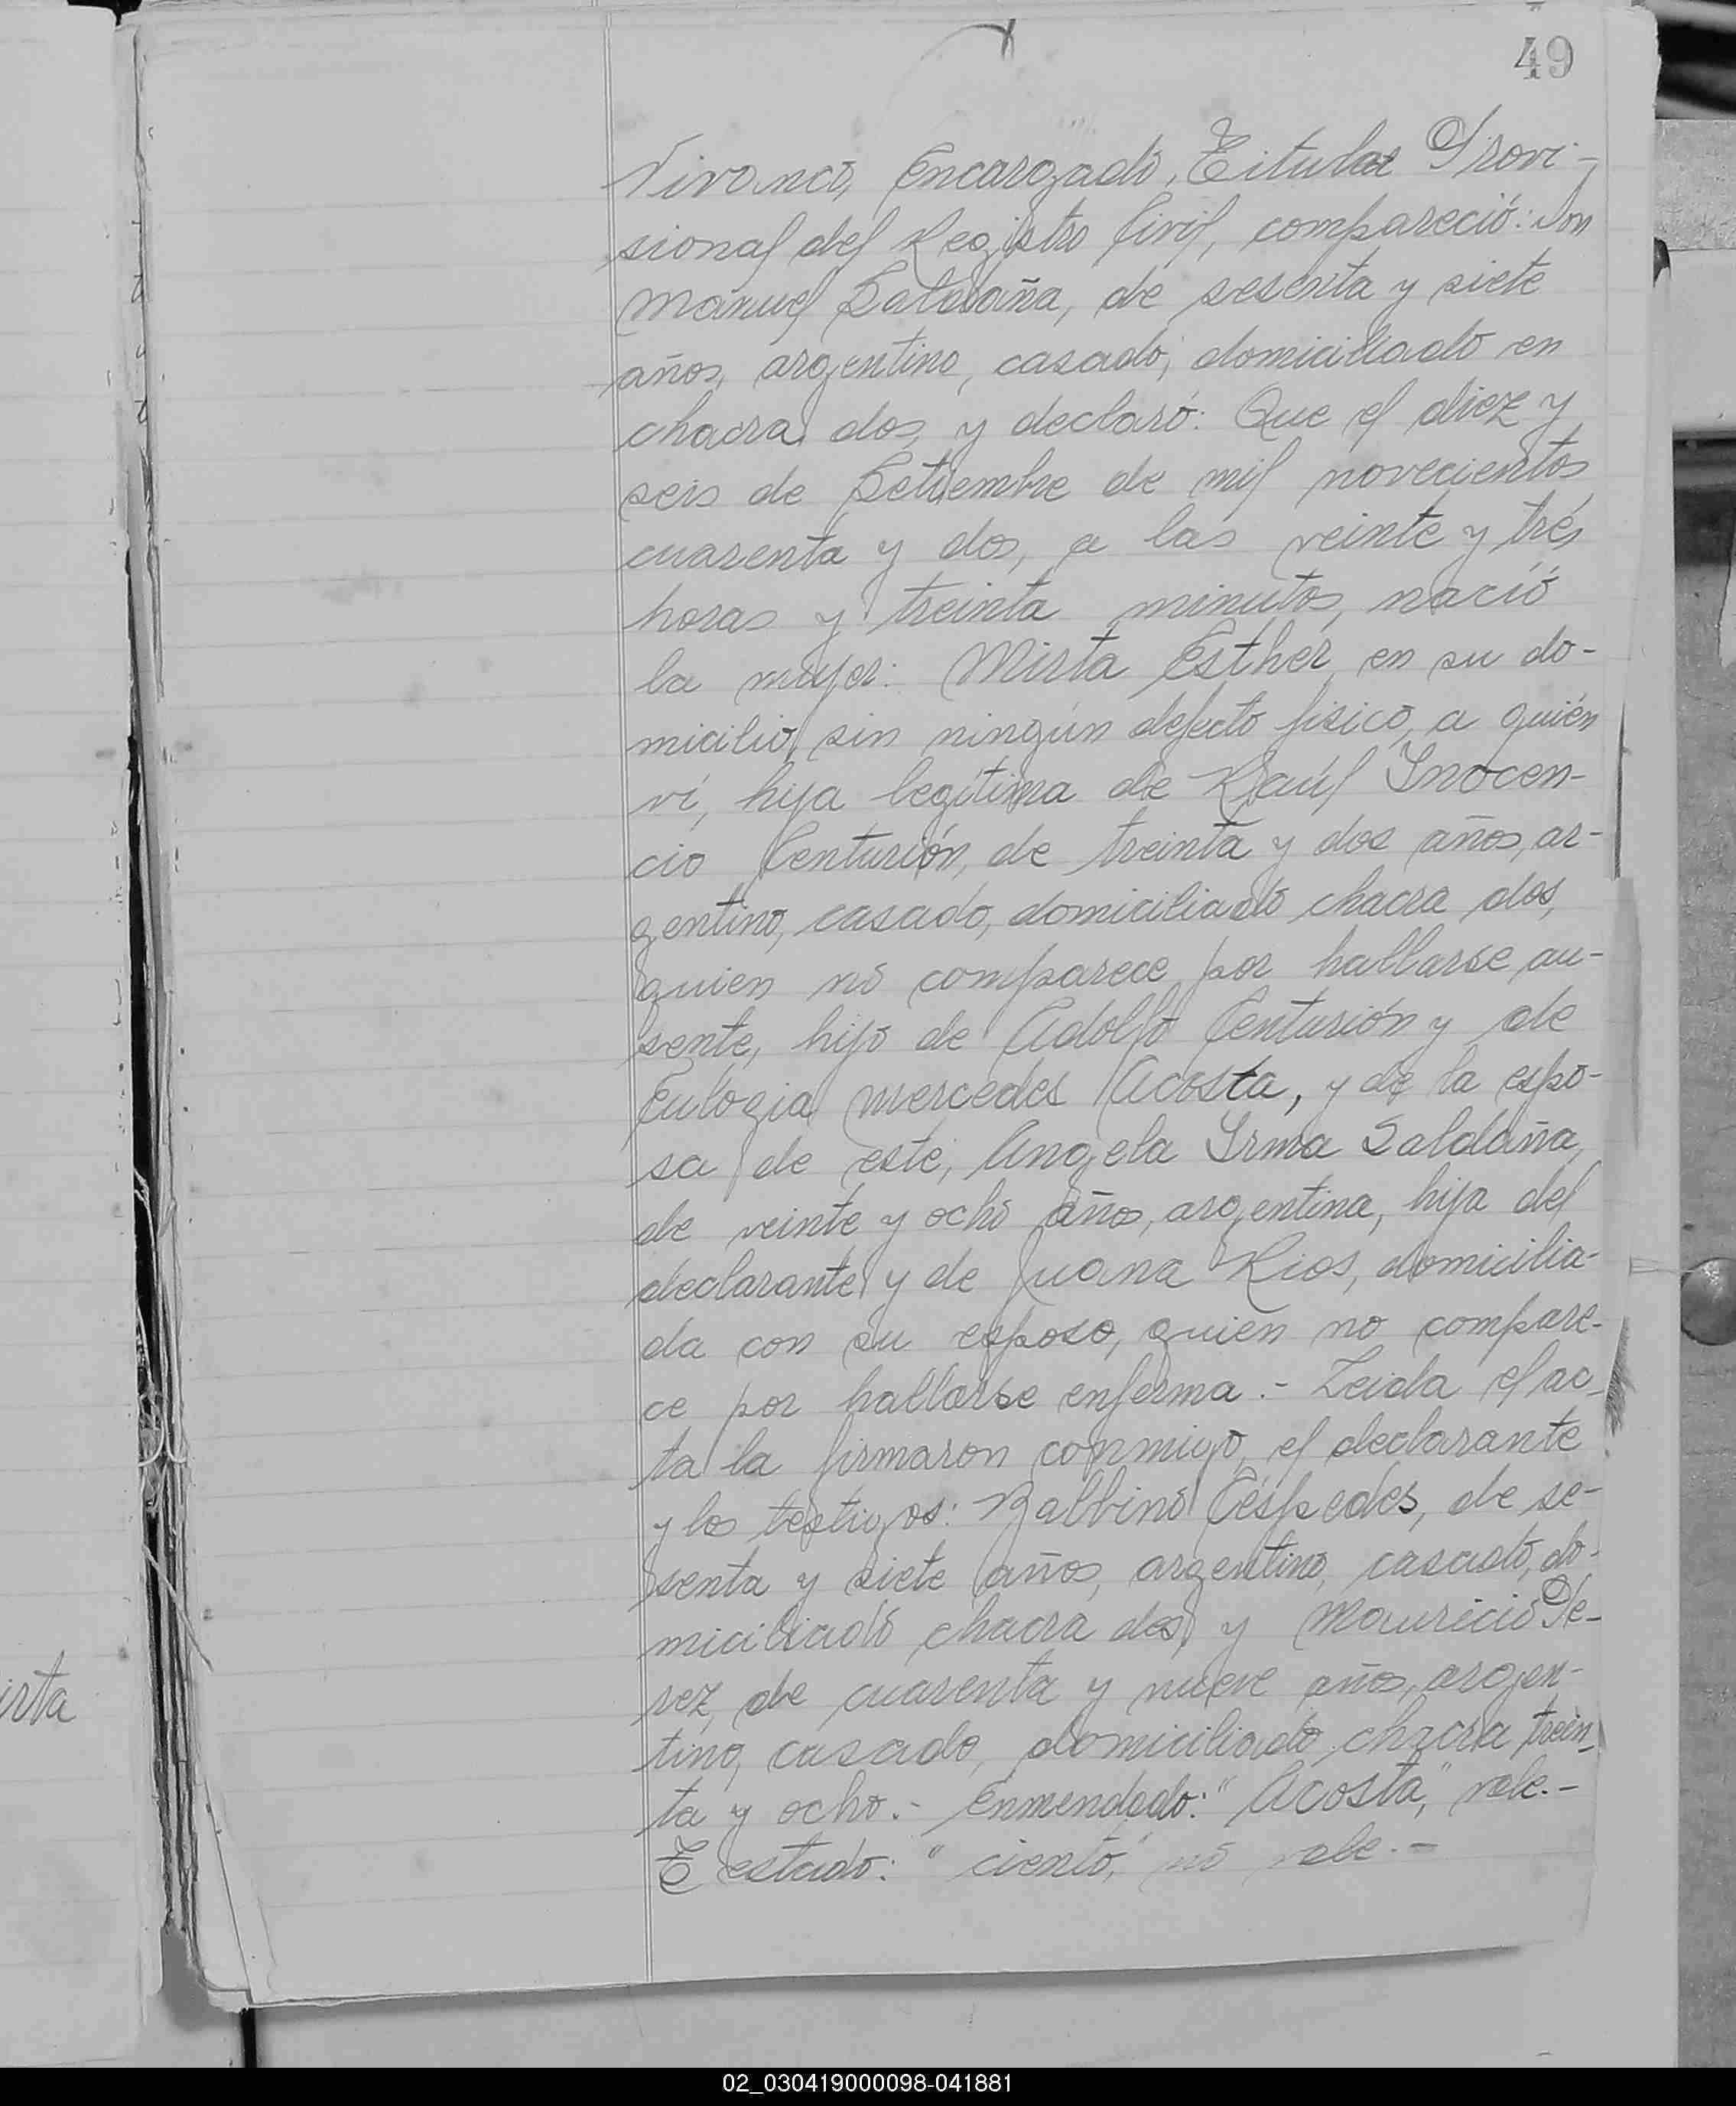 49
Vivanco, Encargado Titular Provi-
sional del Registro Civil, compareció: Don
Manuel Saldaña, de sesenta y siete
años, argentino, casado, domiciliado en
chacra dos, y declaró: Que el diez y
seis de Setiembre de mil novecientos
cuarenta y dos, a las veinte y trés
horas y treinta minutos, nació
la mujer: Mirta Esther, en su do-
micilio, sin ningún defecto fisico, a quién
ví, hija legítima de Raúl Inocen-
cio Centurión, de treinta y dos años, ar-
gentino, casado, domiciliado chacra dos,
quien no comparece por hallarse au-
sente, hijo de Adolfo Centurión y de
Eulogia Mercedes Acosta, y de la espo-
sa de este, Angela Irma Saldaña,
de veinte y ocho años, argentina, hija del
declarante y de Juana Rios, domicilia-
da con su esposo, quien no compare-
ce por hallarse enferma.- Leida el ac-
ta la firmaron conmigo, el declarante
y los testigos: Balbino Céspedes, de se-
senta y siete años, argentino, casado, do-
miciliado chacra dos, y Mauricio Pé-
rez, de cuarenta y nueve años, argen-
tino, casado, domiciliado chacra trein-
ta y ocho.- Enmendado: "Acosta," vale.-
Testado: "ciento," no vale.-
irta
02_030419000098-041881